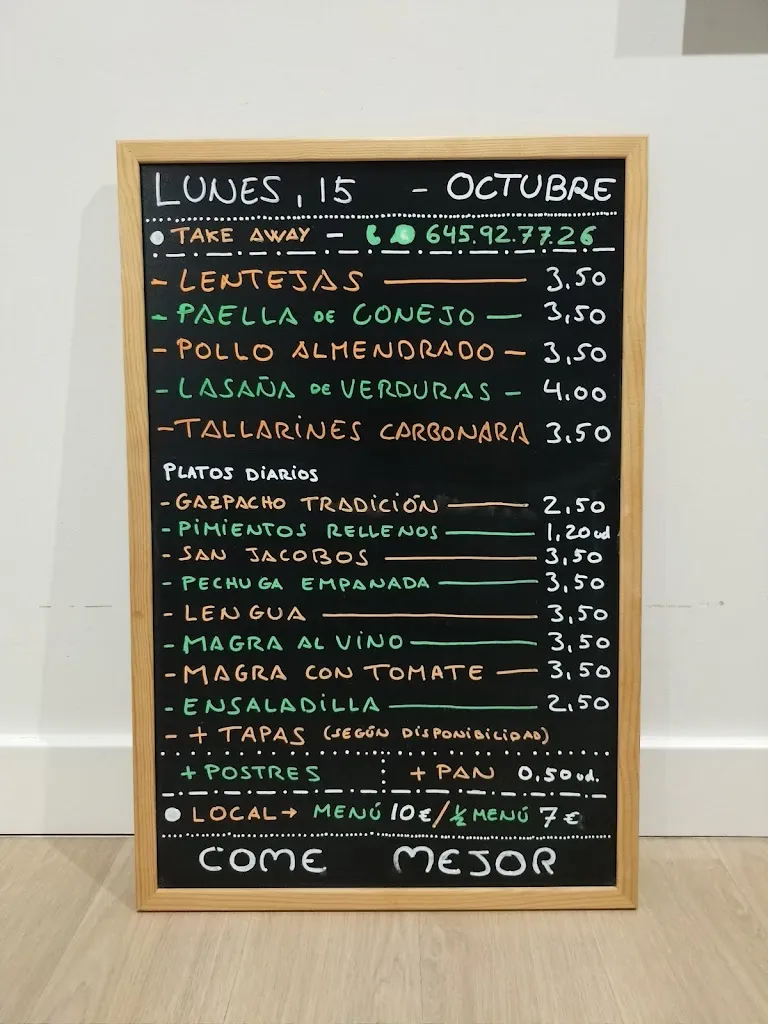 LUNES, 15 - OCTUBRE
TAKE AWAY - 645.92.77.26
- LENTEJAS — 3,50
- PAELLA DE CONEJO — 3,50
- POLLO ALMENDRADO — 3,50
- LASAÑA DE VERDURAS - 4.00
- TALLARINES CARBONARA 3,50
PLATOS DIARIOS
- GAZPACHO TRADICIÓN — 2,50
- PIMIENTOS RELLENOS — 1,20 ud
- SAN JACOBOS — 3,50
- PECHUGA EMPANADA — 3,50
- LENGUA — 3,50
- MAGRA AL VINO — 3,50
- MAGRA CON TOMATE — 3,50
- ENSALADILLA — 2,50
- + TAPAS (SEGÚN DISPONIBILIDAD)
+ POSTRES + PAN 0,50 ud.
LOCAL → MENÚ 10 € / ½ MENÚ 7 €
COME MEJOR